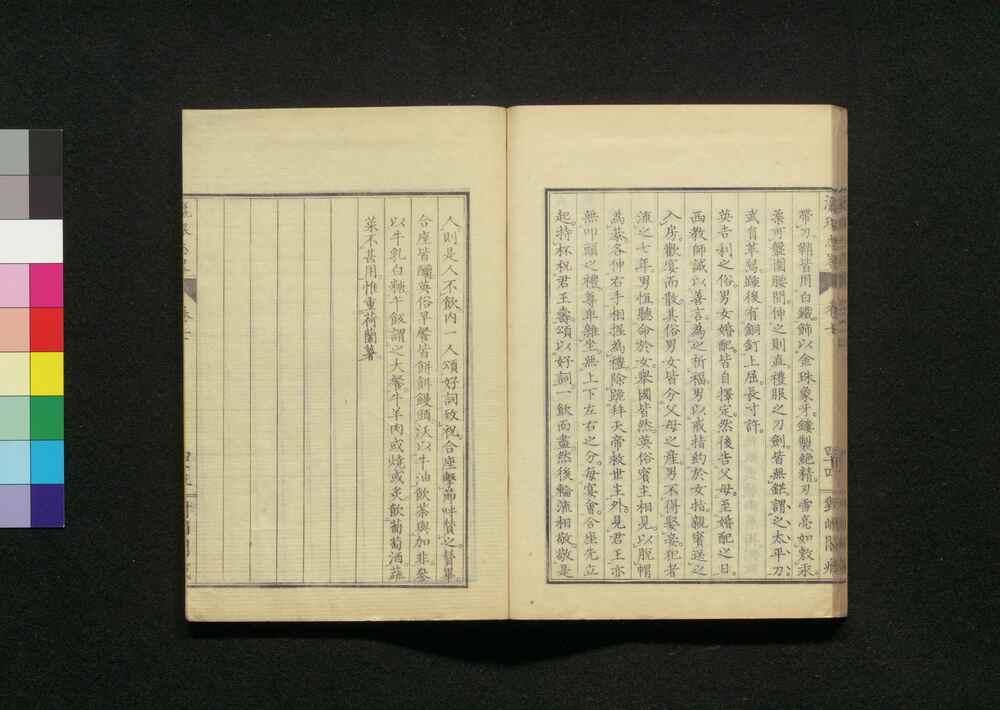 帶刀鞘皆用白鐵飾以金珠象牙鏤製絶精刃雪亮如敷汞
藥可盤圍腰間伸之則直禮服之刀劍皆無鋩謂之太平刀
武官革舄踵後有銅釘上屈長寸許
英吉利之俗男女婚配皆自擇定然後告父母至婚配之日
西教師誡以善言為之祈福男以戒指約於女指親賓送之
入房歡宴而散其俗男女皆分父母之産男不得娶妾犯者
流之七年男恒聽命於女舉國皆然英俗賓主相見以脫帽
為恭各伸右手相握為禮除跪拜天帝救世主外見君王亦
無叩頭之禮尊卑雜坐無上下左右之分每宴會合座先立
起持杯祝君王壽頌以好詞一飲而盡然後輪流相敬敬是
人則是人不飲内一人頌好詞致祝合座擊節呼贊之贊畢
合座皆釂英俗早餐皆餅餌饅頭沃以牛油飲茶與加非參
以牛乳白糖午飯謂之大餐牛羊肉或燒或炙飲葡萄酒蔬
菜不甚用惟重荷蘭薯
卷七
四十四